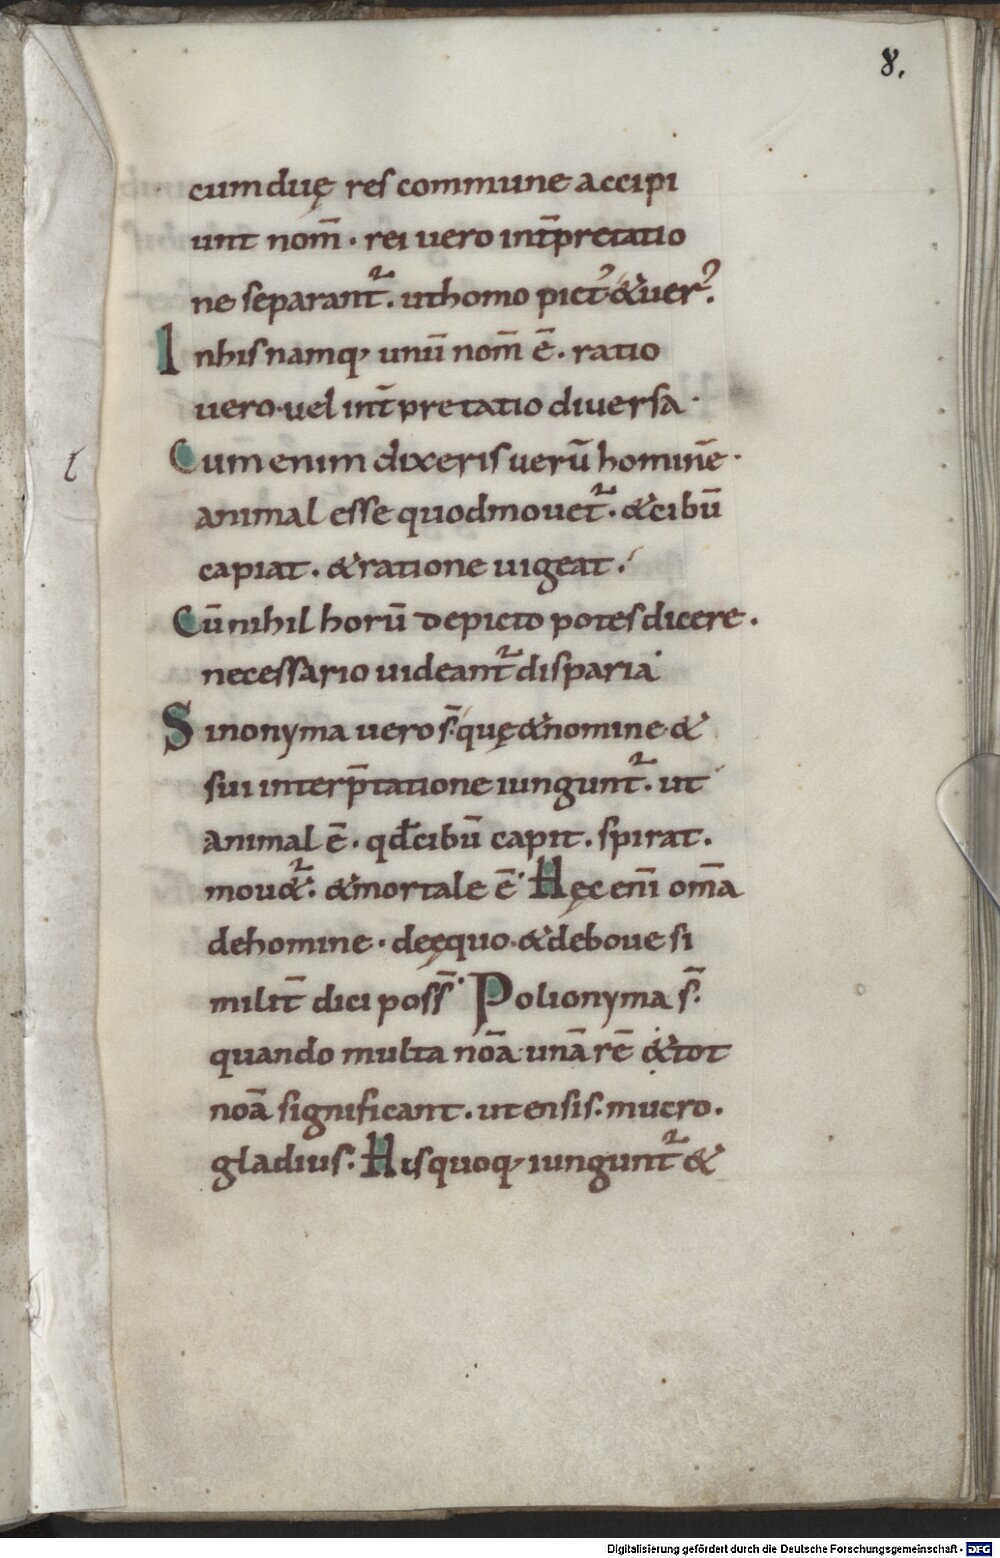 8.
cum duę res commune accipi
unt nom̄. rei uero int̄pretatio
ne separant᷑. ut homo pict᾽ & uer᾽.
In his namq; unū nom̄ ē. ratio
uero uel int̄pretatio diuersa.
Cum enim dixeris uerū hominē.
animal esse quod mouet᷑. & cibū
capiat. & ratione uigeat.
Cū nihil horū de picto potes dicere.
necessario uideant᷑ disparia.
Sinonyma uero s̄. quę & nomine &
sui interp̄tatione iungunt᷑. ut
animal ē. qđ cibū capit. spirat.
mou&᷑. & mortale ē. Hęc enī om̄a
de homine. de ęquo. & de boue si
milit̄ dici poss̄. Polionyma s̄.
quando multa nōa unā rē & tot
nōa significant. ut ensis. mucro.
gladius. His quoq; iungunt᷑ &
l
Digitalisierung gefördert durch die Deutsche Forschungsgemeinschaft - DFG